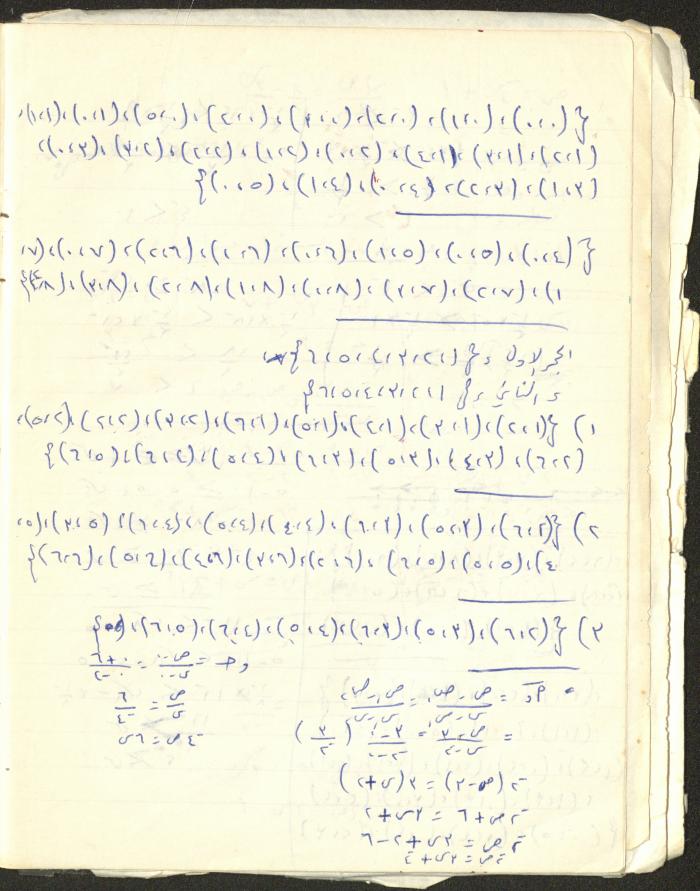 {(٠،٠)، (٠،١)، (٠،٢)، (٠،٣)، (٠،٤)، (٠،٥)، (١،٠)، (١،١)،
(١،٢)، (١،٣)، (١،٤)، (٢،٠)، (٢،١)، (٢،٢)، (٢،٣)، (٣،٠)،
(٣،١)، (٣،٢)، (٤،٠)، (٤،١)، (٥،٠)}
{(٤،٠)، (٥،٠)، (٥،١)، (٦،٠)، (٦،١)، (٦،٢)، (٧،٠)، (٧،
١)، (٧،٢)، (٧،٣)، (٨،٠)، (٨،١)، (٨،٢)، (٨،٣)، (٨،٤)}
الحجر الاول = {١،٢،٣،٤،٥،٦}
و الثاني = {١،٢،٣،٤،٥،٦}
١) {(١،٢)، (١،٣)، (١،٤)، (١،٥)، (١،٦)، (٢،٣)، (٢،٤)، (٢،٥)،
(٢،٦)، (٣،٤)، (٣،٥)، (٣،٦)، (٤،٥)، (٤،٦)، (٥،٦)}
٢) {(٢،٦)، (٣،٥)، (٣،٦)، (٤،٤)، (٤،٥)، (٤،٦)، (٥،٣)، (٥،
٤)، (٥،٥)، (٥،٦)، (٦،٢)، (٦،٣)، (٦،٤)، (٦،٥)، (٦،٦)}
٣) {(٢،٦)، (٣،٥)، (٣،٦)، (٤،٥)، (٤،٦)، (٥،٦)}
= (ص - ص١)/(س - س١) = (ص١ - ص٢)/(س١ - س٢)
= (ص - ٣)/(س - ٢) = (٣ - ٠)/(-٢ - ٠) (٣/-٢)
-٢ (ص - ٣) = ٣ (س + ٢)
-٢ص + ٦ = ٣س + ٢
-٢ص = ٣س + ٢ - ٦
-٢ص = ٣س + ٤
و حـ = (ص - ٠)/(س - ٠) = (٠ + ٦)/(٠ - ٤)
ص/س = ٦/-٤
-٤ص = ٦س